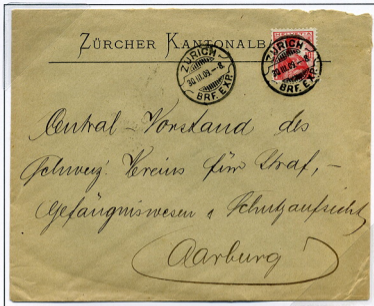 ZÜRCHER KANTONALBA
ZÜRICH
30.III.09.-8
BRF. EXP.
HELVETIA
ZÜRICH
30.III.09.
BRF. EXP.
Central-Vorstand des
Schweiz. Vereins für Straf,-
Gefängniswesen u Schutzaufsicht
Aarburg